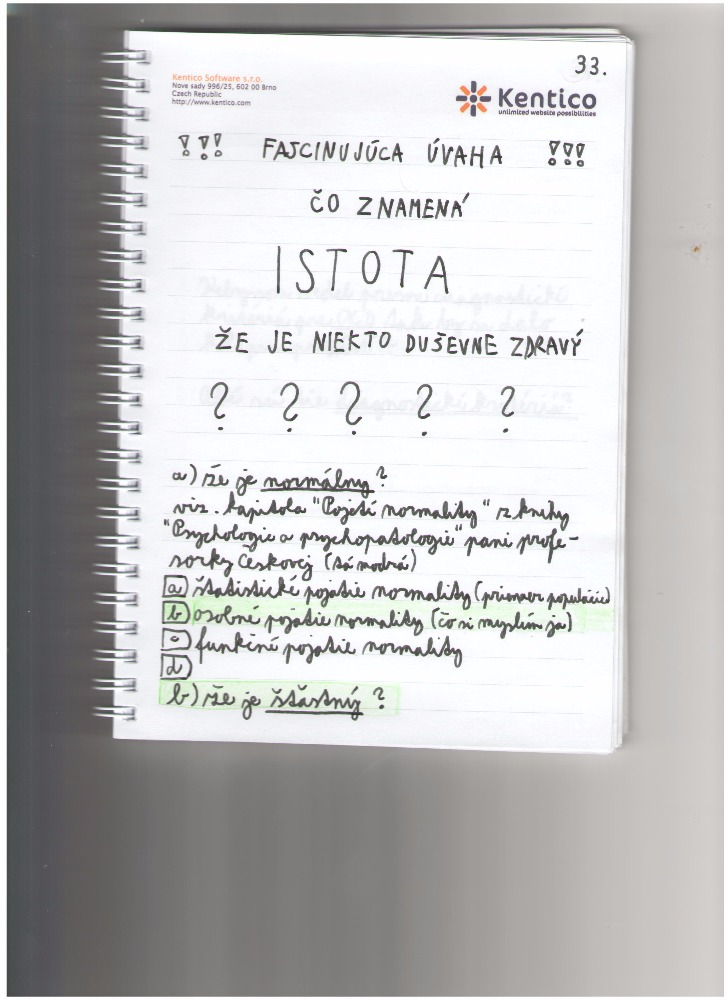 33.
Kentico Software s.r.o.
Nove sady 996/25, 602 00 Brno
Czech Republic
http://www.kentico.com
Kentico
unlimited website possibilities
!!! FAJCINUJÚCA ÚVAHA !!!
ČO ZNAMENÁ
ISTOTA
ŽE JE NIEKTO DUŠEVNE ZDRAVÝ
? ? ? ? ?
a) že je normálny?
viz. kapitola "Pojetí normality" z knihy
"Psychologie a psychopatologie" pani profe-
sorky Českovej (tá modrá)
a) štatistické pojatie normality (priemer populácie)
b) osobné pojatie normality (čo si myslím ja)
c) funkčné pojatie normality
d)
b) že je šťastný?